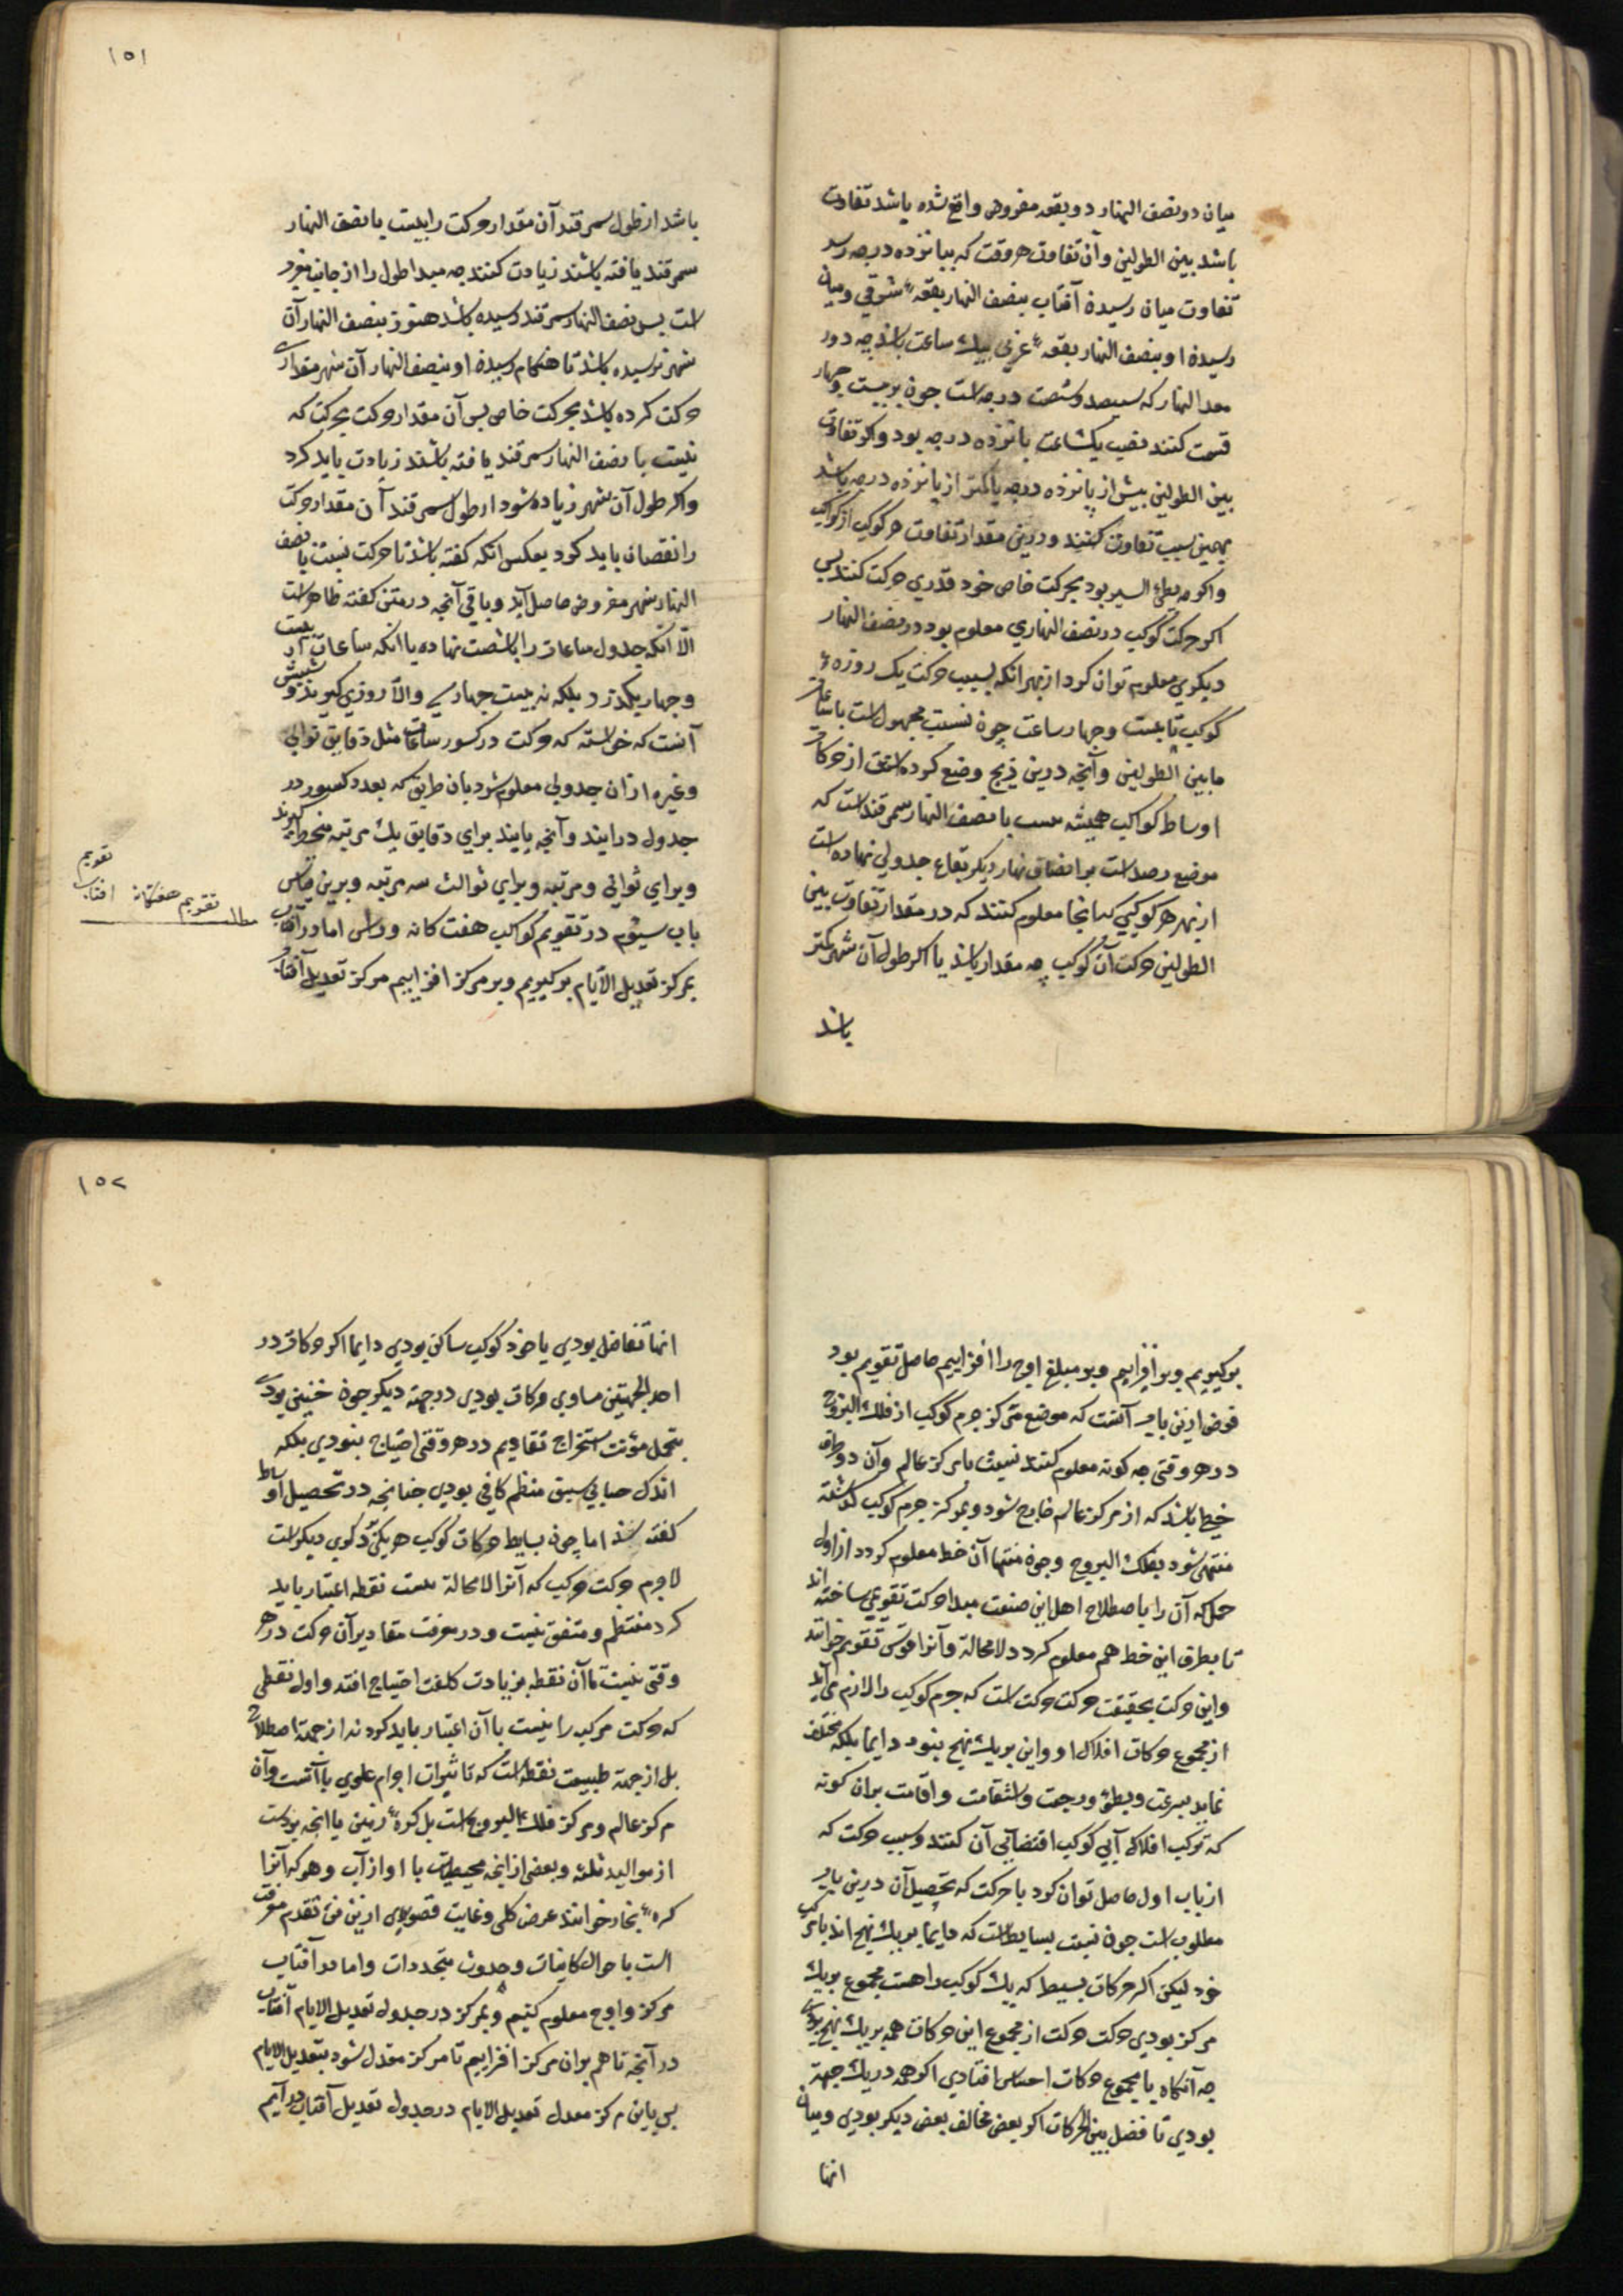 میان دو نصف النهار دو بقعه مفروض واقع شده باشد تفاوت
باشد بین الطولین وآن تفاوت هر وقت که بپانزده درجه رسد
تفاوت میان رسیدن آفتاب بنصف النهار بقعهٔ شرقی ومیان
رسیدن او بنصف النهار بقعهٔ غربی بیک ساعت باشد چه دور
معدل النهار که سیصد وشصت درجه است چون بر بیست وچهار
قسمت کنند نصیب یکساعت پانزده درجه بود واکر تفاوت
بین الطولین بیش از پانزده درجه یا کمتر از پانزده درجه باشد
بهمین نسبت تفاوت کنند ودرین مقدار تفاوت هر کوکب از کواکب
واکرچه بطئ السیر بود بحرکت خاص خود قدری حرکت کند پس
اکر حرکت کوکب در نصف النهاری معلوم بود در نصف النهار
دیکری معلوم توان کرد از بهر آنکه بسبب حرکت یک روزهٔ
کوکب تا بیست وچهار ساعت چون نسبت مجهول است با ساعات
ما بین الطولین وآنچه درین زیج وضع کرده است از حرکات
اوساط کواکب همیشه بنسبت با نصف النهار سمرقند است که
موضع رصد است بر انصاف نهار دیکر بقاع جدولی نهاده است
از بهر هر کوکبی که آنجا معلوم کنند که در مقدار تفاوت بین
الطولین حرکت آن کوکب چه مقدار باشد یا اکر طول آن شهر کمتر
باشد
۱۵۱
باشد از طول سمرقند آن مقدار حرکت را بنسبت با نصف النهار
سمرقند یافته باشند زیادت کنند چه مبدا طول را از جانب مغرب
است پس نصف النهار سمرقند رسیده باشد هنوز بنصف النهار آن
شهر نرسیده باشد تا هنکام رسیدن او بنصف النهار آن شهر مقداری
حرکت کرده باشد بحرکت خاص پس آن مقدار حرکت بحرکت که
نسبت با نصف النهار سمرقند یافته باشند زیادت باید کرد
واکر طول آن شهر زیاده شود از طول سمرقند آن مقدار حرکت
را نقصان باید کرد بعکس آنکه کفته باشد تا حرکت نسبت با نصف
النهار شهر مفروض حاصل آید وباقی آنچه در متن کفته ظاهر است
الّا آنکه جدول ساعات را باشصت نهاده با آنکه ساعات از بیست
وچهار نکذرد بلکه نه بیست چهار والّا روزی کیرند وسببش
آنست که خواسته که حرکت در کسور ساعات مثل دقایق ثوانی
وغیره از آن جدول معلوم شود بان طریق که بعدد کسور در
جدول در آیند وآنچه یابند برای دقایق یک مرتبه منحط کیرند
وبرای ثوانی دو مرتبه وبرای ثوالث سه مرتبه وبرین قیاس
باب سیوم در تقویم کواکب هفت کانه وراس اما در آفتاب
بمرکز تعدیل الایام بر کیریم وبر مرکز افزاییم مرکز تعدیل آفتاب
مطلب تقویم هفتکانه
تقویم آفتاب
برکیریم وبر افزاییم وبر مبلغ اوج را افزاییم حاصل تقویم بود
غرض ازین باب آنست که موضع مرکز جرم کوکب از فلک البروج
در هر وقتی چه کونه معلوم کنند نسبت با مرکز عالم وآن دو طرف
خطی باشد که از مرکز عالم خارج شود وبمرکز جرم کوکب کذشته
منتهی شود بفلک البروج وچون منتها آن خط معلوم کردد از اول
حمل که آن را باصطلاح اهل این صنعت مبدا حرکت تقویمی ساخته اند
تا بطرف این خط هم معلوم کردد لا محالة وآنرا قوس تقویم خوانند
واین حرکت بحقیقت حرکت حرکت است که جرم کوکب را لازم می آید
از مجموع حرکات افلاک او واین بر یک نهج نبود دایما بلکه مختلف
نماید بسرعت وبطؤ ورجعت واستقامت واقامت بران کونه
که ترکب افلاک آن کوکب اقتضای آن کنند وسبب حرکت که
از باب اول حاصل توان کرد با حرکت که تحصیل آن درین باب
مطلوب است چون نسبت بسایط است که دایما بر یک نهج اند با مرکب
خود لیکن اکر حرکات بسیط که یک کوکب را هست مجموع بر یک
مرکز بودی حرکت حرکت از مجموع این حرکات همه بر یک نهج بودی
چه آنکاه با مجموع حرکات احساس افتادی اکر همه در یک جهة
بودی تا فضل بین الحرکات اکر بعض مخالف بعض دیکر بودی ومیان
انها
۱۵۲
انها تفاضل بودی یا خود کوکب ساکن بودی دایما اکر حرکات در
احد الجهتین مساوی حرکات بودی در جهة دیکر چون چنین بودی
بتحمل مؤنت استخراج تقاویم در هر وقتی احتیاج نبودی بلکه
اندک حسابی بنسق منظم کافی بودی چنانچه در تحصیل اوساط
کفته شد اما چون بسایط حرکات کوکب هر یکی دکری دیکر است
لاجرم حرکت مرکب که آنرا لا محالة نسبت نقطه اعتبار باید
کرد منتظم ومتفق نیست ودر معرفت مقادیر آن حرکت در هر
وقتی نسبت با آن نقطه بزیادت کلفت احتیاج افتد واول نقطی
که حرکت مرکب را نسبت با آن اعتبار باید کرد نه از جهة اصطلاح
بل از جهة طبیعت نقطه است که تاثیرات اجرام علوی با آنست وآن
مرکز عالم ومرکز فلک البروج است بل کرهٔ زمین با آنچه بروست
از موالید ثلثه وبعضی از آنچه محیط است با او از آب وهوا که آنرا
کرهٔ بخار خوانند عرض کلی وغایت قصوی ازین فن تقدم معرفت
است باحوال کاینات وحدوث متجددات واما در آفتاب
مرکز واوج معلوم کنیم وبمرکز در جدول تعدیل الایام آفتاب
در آنچه تا هم بران مرکز افزاییم تا مرکز معدل شود بتعدیل الایام
پس باین مرکز معدل تعدیل الایام در جدول تعدیل آفتاب در آییم